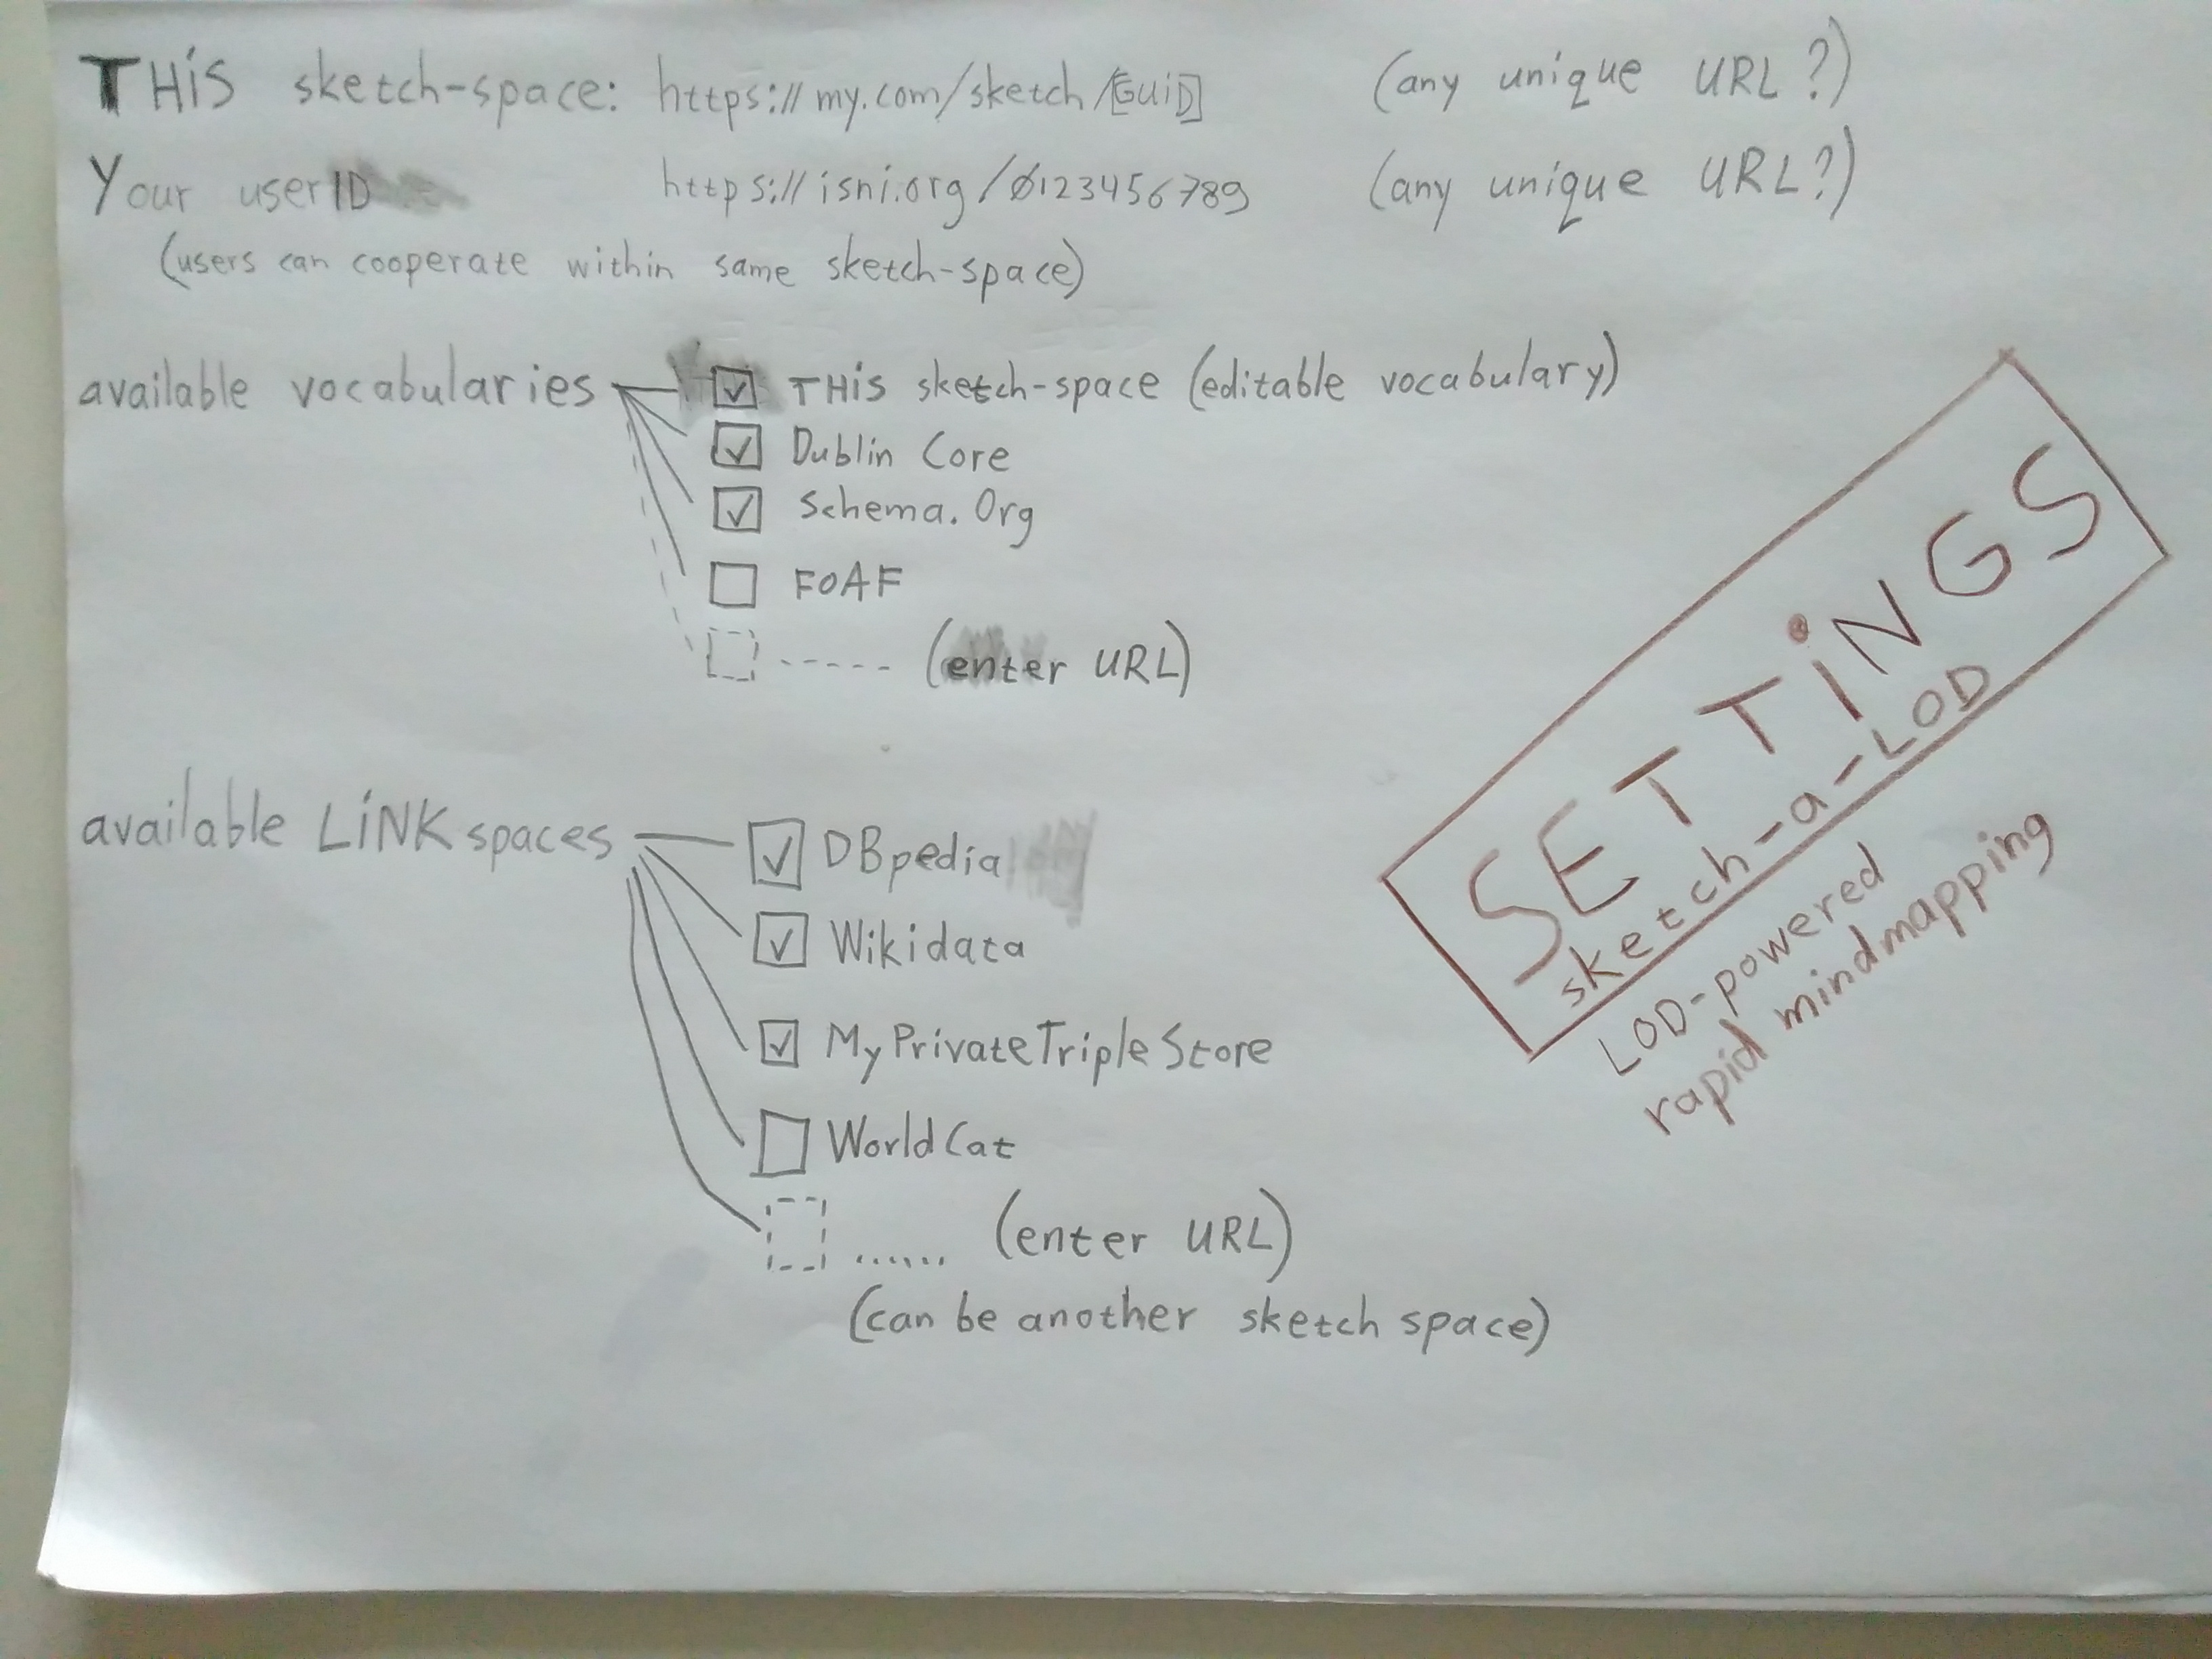 THiS sketch-space: https://my.com/sketch/[GUiD] (any unique URL?)
Your userID https://isni.org/0123456789 (any unique URL?)
(users can cooperate within same sketch-space)
available vocabularies THiS sketch-space (editable vocabulary)
Dublin Core
Schema.Org
FOAF
------ (enter URL)
available LiNK spaces DBpedia
Wikidata
MyPrivateTripleStore
WorldCat
...... (enter URL)
(can be another sketch space)
SETTiNGS
sketch-a-LOD
LOD-powered
rapid mindmapping